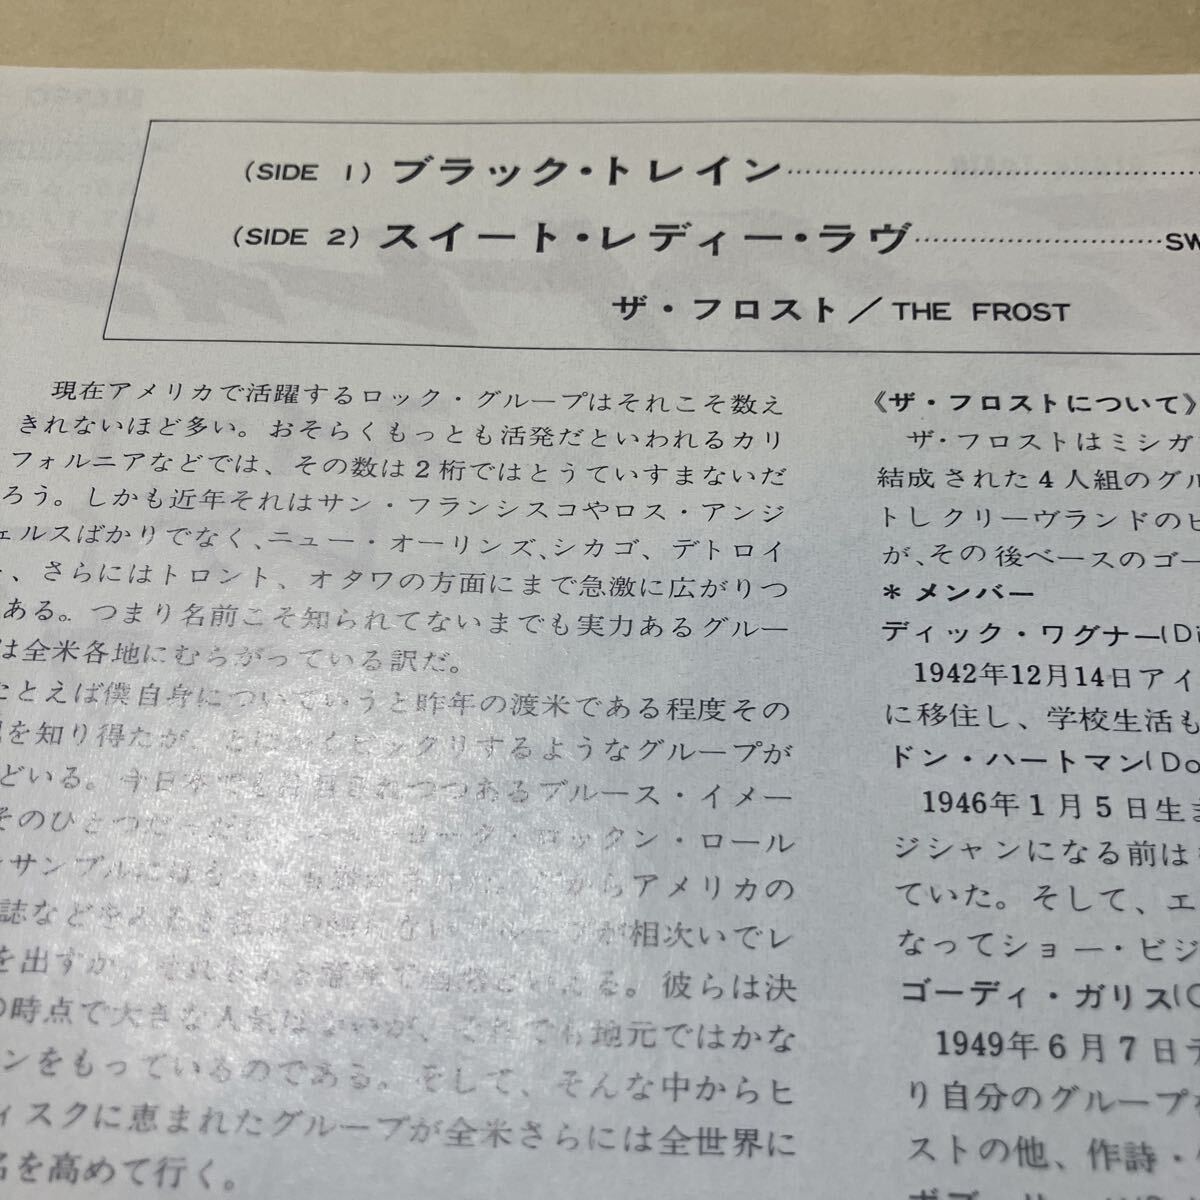 (SIDE 1) ブラック・トレイン
(SIDE 2) スイート・レディー・ラヴ SW
ザ・フロスト／THE FROST
現在アメリカで活躍するロック・グループはそれこそ数え
きれないほど多い。おそらくもっとも活発だといわれるカリ
フォルニアなどでは、その数は2桁ではとうていすまないだ
ろう。しかも近年それはサン・フランシスコやロス・アンジ
ェルスばかりでなく、ニュー・オーリンズ、シカゴ、デトロイ
、さらにはトロント、オタワの方面にまで急激に広がりつ
ある。つまり名前こそ知られてないまでも実力あるグルー
は全米各地にむらがっている訳だ。
たとえば僕自身についていうと昨年の渡米である程度その
を知り得たが、とにかくビックリするようなグループが
どいる。今日本でも
つつあるブルース・イメー
そのひとつだ
ロックン・ロール
サンプルには
からアメリカの
誌などをみると
グループが相次いでレ
を出すが、
いえる。彼らは決
の時点で大きな人気はないが、それでも地元ではかな
ンをもっているのである。そして、そんな中からヒ
ィスクに恵まれたグループが全米さらには全世界に
名を高めて行く。
《ザ・フロストについて》
ザ・フロストはミシガ
結成された4人組のグル
トしクリーヴランドのビ
が、その後ベースのゴー
＊メンバー
ディック・ワグナー(Di
1942年12月14日アイ
に移住し、学校生活も
ドン・ハートマン(Do
1946年1月5日生ま
ジシャンになる前は
ていた。そして、エ
なってショー・ビジ
ゴーディ・ガリス(G
1949年6月7日デ
り自分のグループを
ストの他、作詩・
ボブ・リ